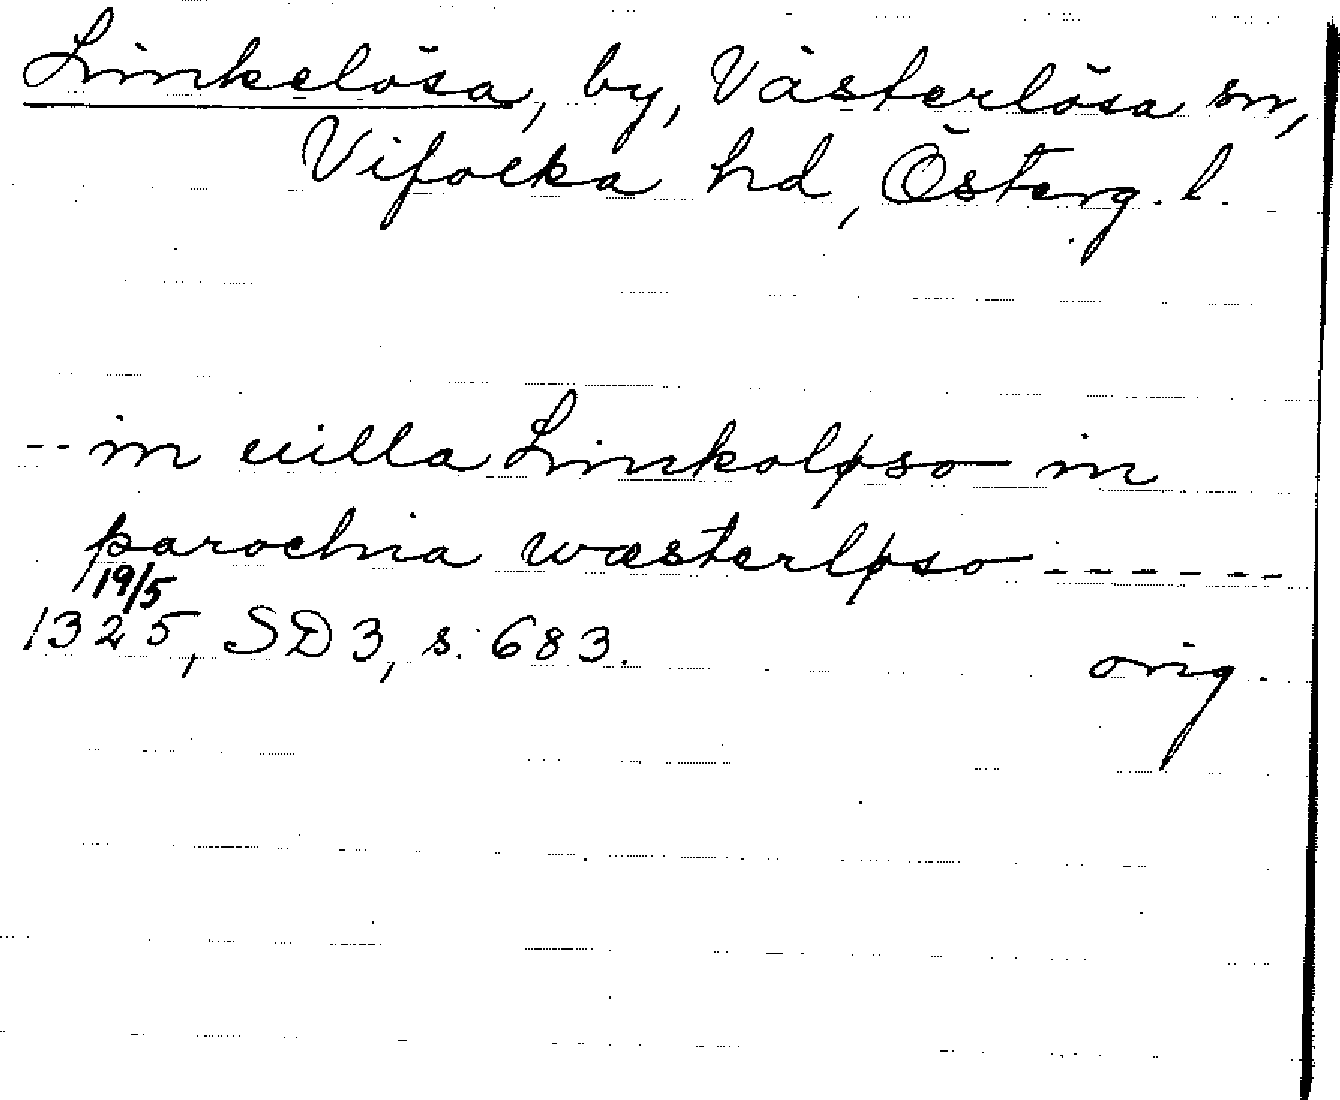 Linkelösa, by, Västerlösa sn,
Vifolka hd, Österg. l.
-- in uilla Linkoløso in
parochia wæsterløso ------
19/5
1325, SD 3, s. 683.
orig.